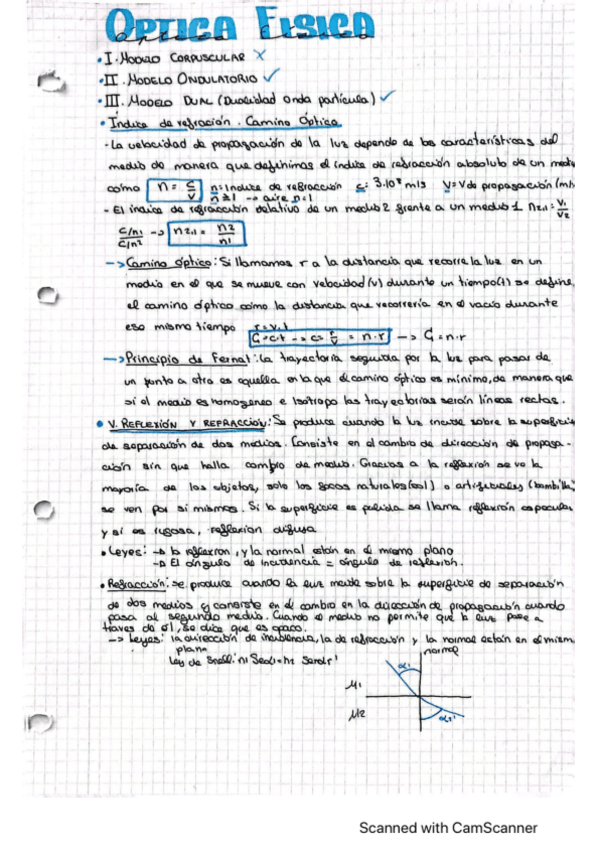 OPTICA FISICA
• I. MODELO CORPUSCULAR X
• II. MODELO ONDULATORIO ✓
• III. MODELO DUAL (Dualidad onda partícula) ✓
• Índice de refración. Camino Óptico
- La velocidad de propagación de la luz depende de las características del
medio de manera que definimos el índice de refracción absoluto de un medi
como n = c/v n = índice de refracción c: 3.10⁸ m/s V = V de propagación (m/s
n ≥ 1 → aire n = 1
- El índice de refracción relativo de un medio 2 frente a un medio 1 n2,1 = V1/V2
c/n1 / c/n2 → n2,1 = n2/n1
→ Camino óptico: Si llamamos r a la distancia que recorre la luz en un
medio en el que se mueve con velocidad (v) durante un tiempo (t) se define,
el camino óptico como la distancia que recorrería en el vacío durante
ese mismo tiempo r = v.t
C = c.t → c r/v = n.r → C = n.r
→ Principio de Fermat: La trayectoria seguida por la luz para pasar de
un punto a otro es aquella en la que el camino óptico es mínimo, de manera que
si el medio es homogeneo e isotropo las trayectorias serán líneas rectas.
• V. REFLEXIÓN Y REFRACCIÓN: Se produce cuando la luz incide sobre la superfici
de separación de dos medios. Consiste en el cambio de dirección de propaga-
ción sin que halla cambio de medio. Gracias a la reflexión se ve la
mayoría de los objetos, solo los focos naturales (sol) o artificiales (bombilla
se ven por si mismos. Si la superficie es pulida se llama reflexión especular
y si es rugosa, reflexion difusa
• Leyes: → la reflexion, y la normal están en el mismo plano
→ El ángulo de incidencia = ángulo de reflexión.
• Refracción: se produce cuando la luz incide sobre la superficie de separación
de dos medios y consiste en el cambio en la dirección de propagación cuando
pasa al segundo medio. Cuando el medio no permite que la luz pase a
traves de él, se dice que es opaco.
→ Leyes: la dirección de incidencia, la de refracción y la normal están en el mism
plano
normal
Ley de Snell:
μ1
μ2
Scanned with CamScanner